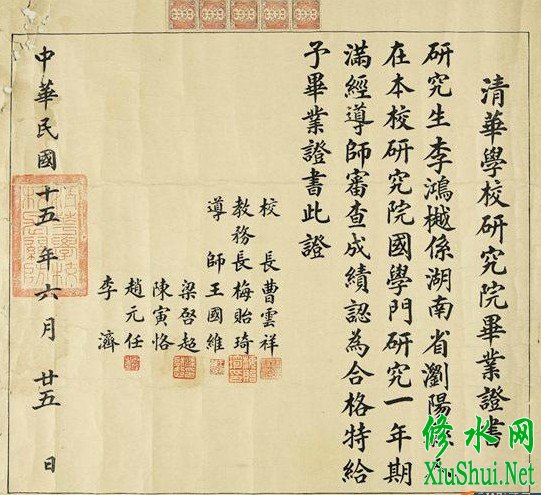 清華學校研究院畢業證書
研究生李鴻樾係湖南省瀏陽縣人
在本校研究院國學門研究一年期
滿經導師審查成績認為合格特給
予畢業證書此證
校長曹雲祥
教務長梅貽琦
導師王國維
梁啓超
陳寅恪
趙元任
李濟
中華民國十五年六月廿五日
修水网
XiuShui.Net